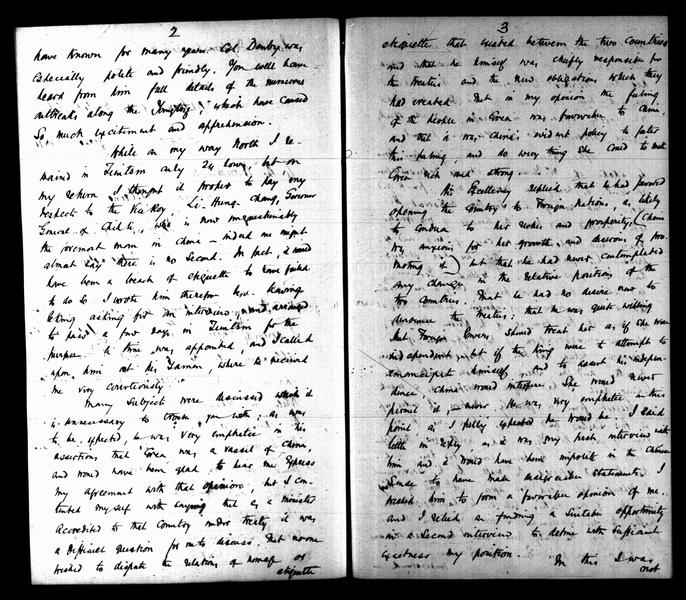 2
have known for many years. Col. Denby was
especially polite and friendly. You will have
heard from him full details of the numerous
outbreaks along the Yangtze, which have caused
so much excitement and apprehension.
While on my way North I re-
mained in Tientsin only 24 hours, but on
my return I thought it proper to pay my
respect to the Vice Roy, Li-Hung-Chang, Governor
General of Chih-li, who is now unquestionably
the foremost man in China — indeed one might
almost say there is no second. In fact, it would
have been a breach of etiquette to have failed
to do so. I wrote him therefore
asking for an interview and arranged
to pass a few days in Tientsin for the
purpose. A time was appointed, and I called
upon him at his Yamen, where he received
me very courteously.
Many subjects were discussed which it
is unnecessary to trouble you with; as was
to be expected, he was very emphatic in his
assertions that Corea was a vassal of China,
and would have been glad to hear me express
my agreement with that opinion, but I con-
tented myself with saying that as a minister
accredited to that Country under treaty it was
a difficult question for me to discuss. That no one
wished to dispute the relations of homage or
etiquette
3
etiquette that existed between the two countries
and that he himself was chiefly responsible for
the treaties and the new obligations which they
had created. That in my opinion the feeling
of the people in Corea was favorable to China,
and that it was China's evident policy to foster
this feeling, and do every thing she could to make
Corea rich and strong.
His Excellency replied that he had favored
opening the Country to Foreign Nations, as likely
to conduce to her riches and prosperity, (China
was anxious for her growth and desirous of pro-
moting it) but that he had never contemplated
any change in the relative positions of the
two Countries. That he had no desire now to
denounce the treaties; that he was quite willing
that Foreign Powers should treat her as if she were
independent, but if the King were to attempt to
emancipate himself, and to assert his indepen-
dence China would interfere. She would never
permit it — never. He was very emphatic on this
point as I fully expected he would be. I said
little in reply as it was my first interview with
him and it would have been impolite in the Chinese
sense to have made disagreeable statements. I
wished him to form a favorable opinion of me,
and I relied on finding a suitable opportunity
in a second interview to define with sufficient
exactness my position. In this I was
not